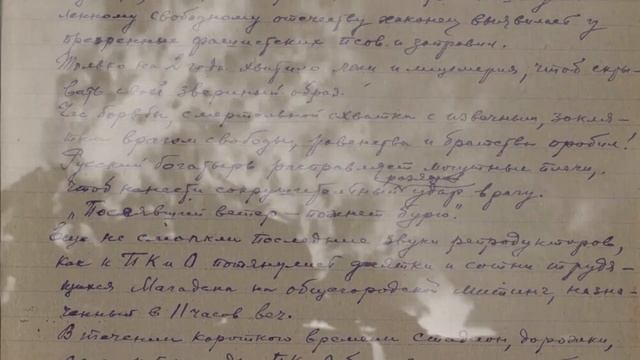 ленному свободному отечеству наконец выявилась у
презренных фашистских псов и затравил.
Только на 2 года хватило лжи и лицемерия, чтоб скры-
вать свой звериный образ.
Час борьбы, смертельной схватки с извечным, закля-
тым врагом свободы, равенства и братства пробил!
Русский богатырь расправляет могутные плечи,
чтоб нанести сокрушительный удар врагу.
"Посеявший ветер – пожнет бурю."
Еще не смолкли последние звуки репродукторов,
как к ПКиО потянулись десятки и сотни трудя-
щихся Магадана на общегородской митинг, назна-
ченный в 11 часов веч.
В течении короткого времени стадион, дорожки,